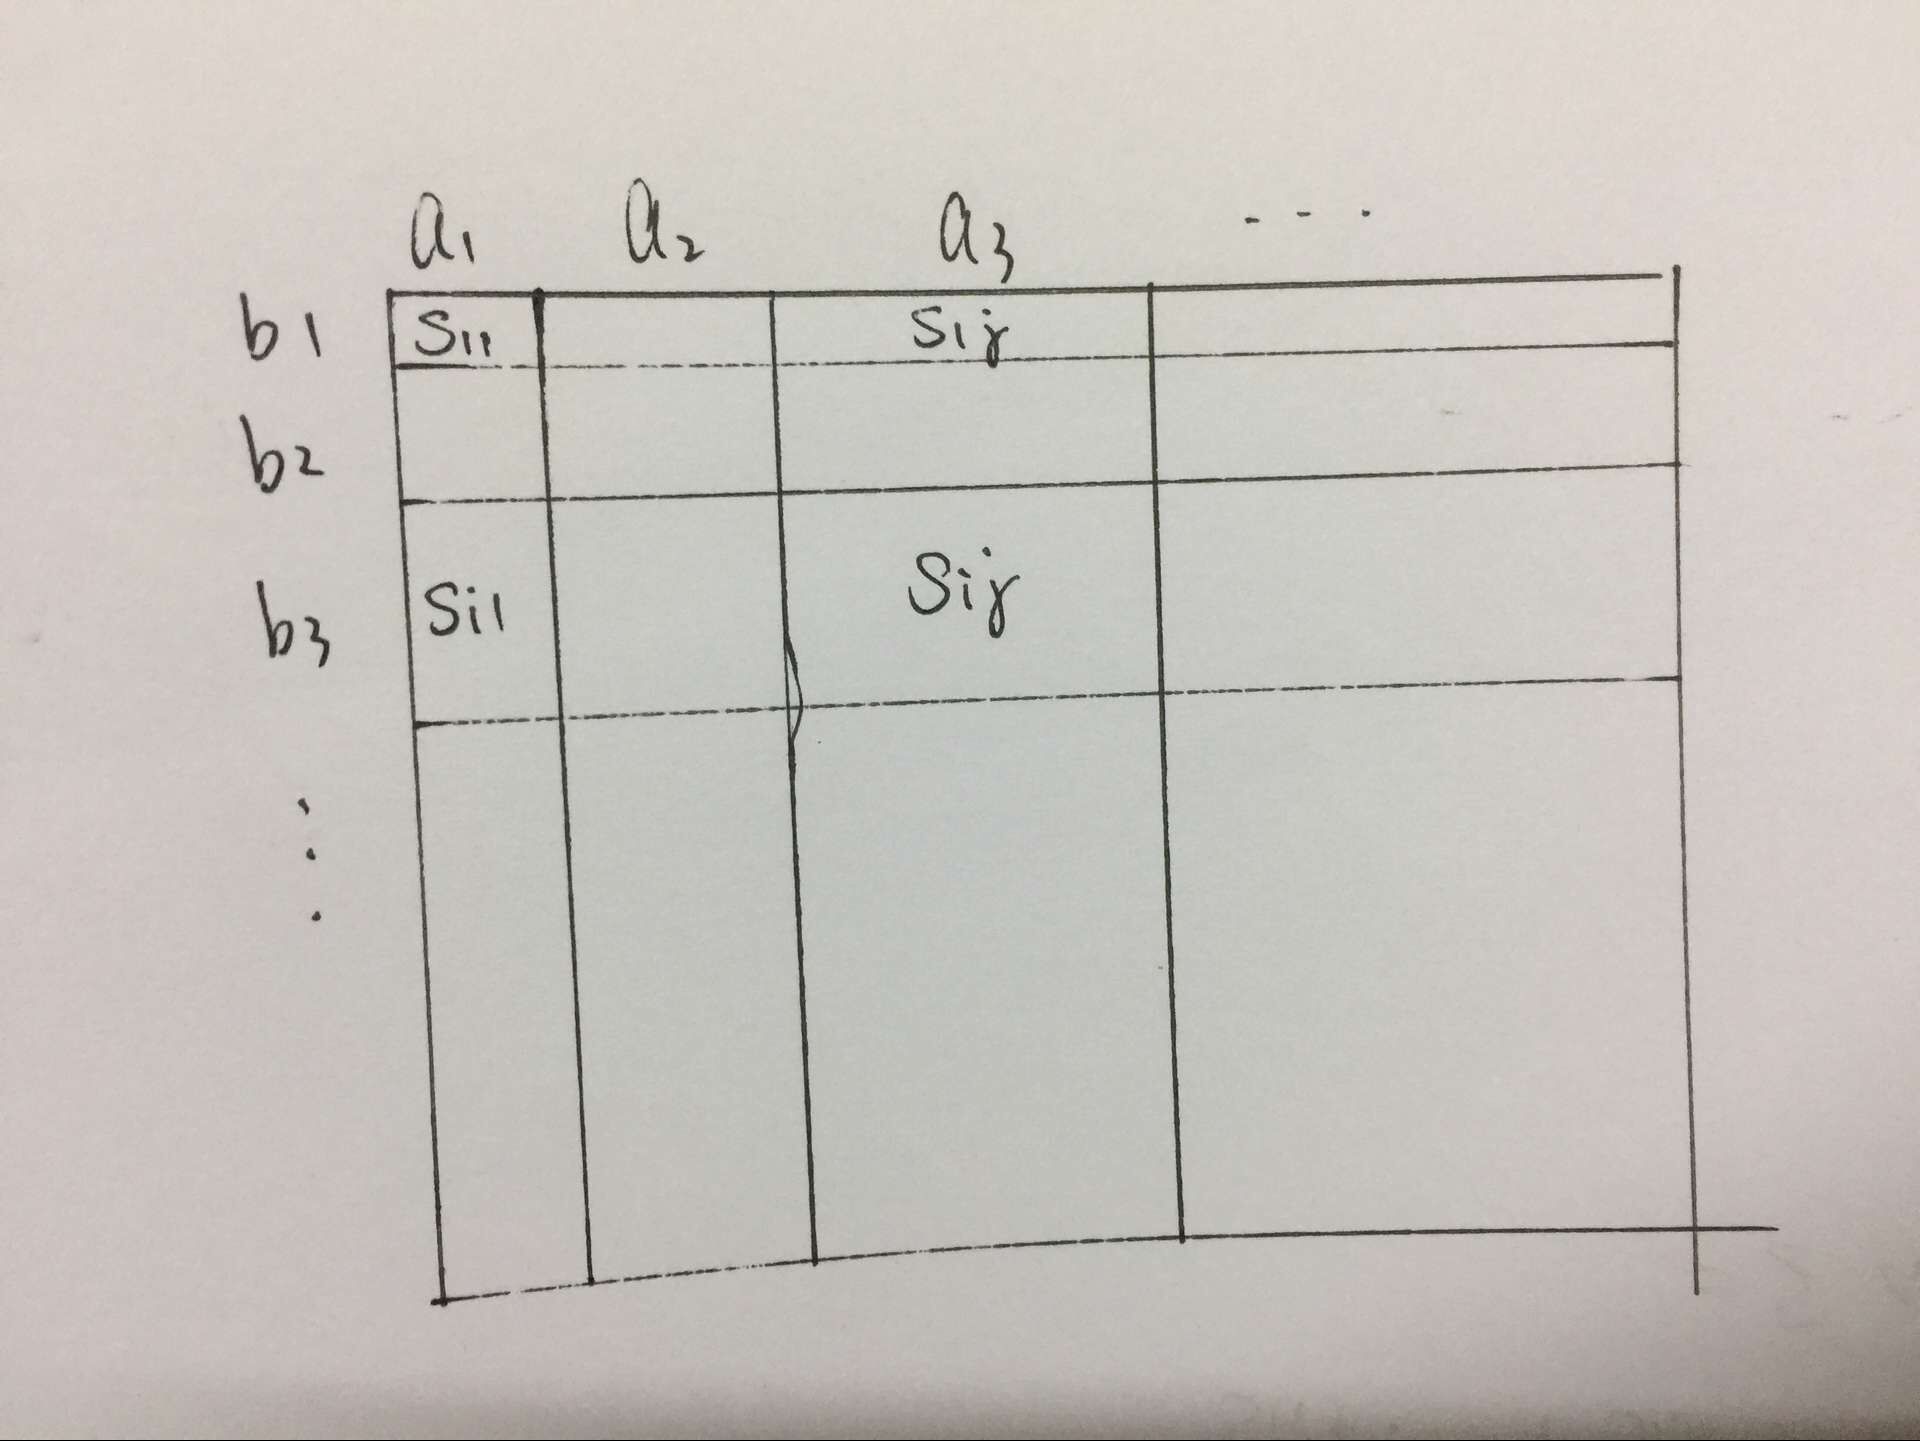 a1 a2 a3 ...
b1 S11 S1j
b2
b3 Si1 Sij
⋮